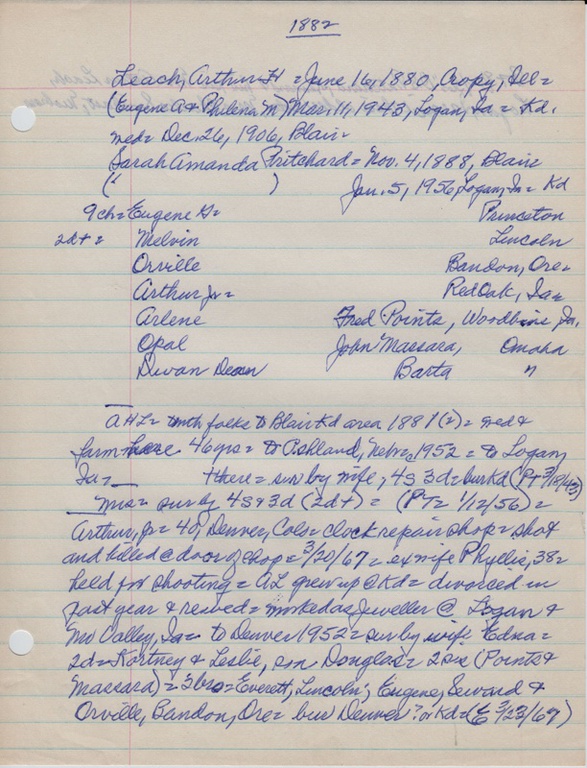 1882
Leach, Arthur H = June 16, 1880 Cropy, Ill =
(Eugene A & Philena M) Mar. 11, 1943, Logan, Ia = Kd.
med = Dec. 26, 1906, Blair =
Sarah Amanda Pritchard = Nov. 4, 1888, Blair
(" ) Jan. 5, 1956 Logan, Ia = Kd
9ch = Eugene G = Princeton
2d+ = Melvin Lincoln
Orville Bandon, Ore =
Arthur Jr = Red Oak, Ia =
Arlene Fred Points, Woodbine, Ia,
Opal John Massara, Omaha
Duvan Dean Barta "
AHL = with folks to Blair Kd area 1881(2) = med &
farm here 46 yrs = to Ashland, Nebr, 1952 = to Logan,
Ia = there = sur by wife, 4s 3d = bur Kd (PT 3/18/43)
Mrs = sur by 4s & 3d (2d+) = (PT = 1/12/56) =
Arthur, Jr = 40, Denver, Colo = clock repair shop = shot
and killed @ door of shop = 3/20/67 = ex wife Phyllis, 38 =
held for shooting = AL grew up @ Kd = divorced in
past year & rewed = worked as Jeweller @ Logan &
Mo Valley, Ia = to Denver 1952 = sur by wife Edna =
2d = Kortney & Leslie, son Douglas = 2 sis (Points &
Massara) = 3 bro = Everett, Lincoln; Eugene, Seward &
Orville, Bandon, Ore = bur Denver? or Kd = (E 3/23/67)